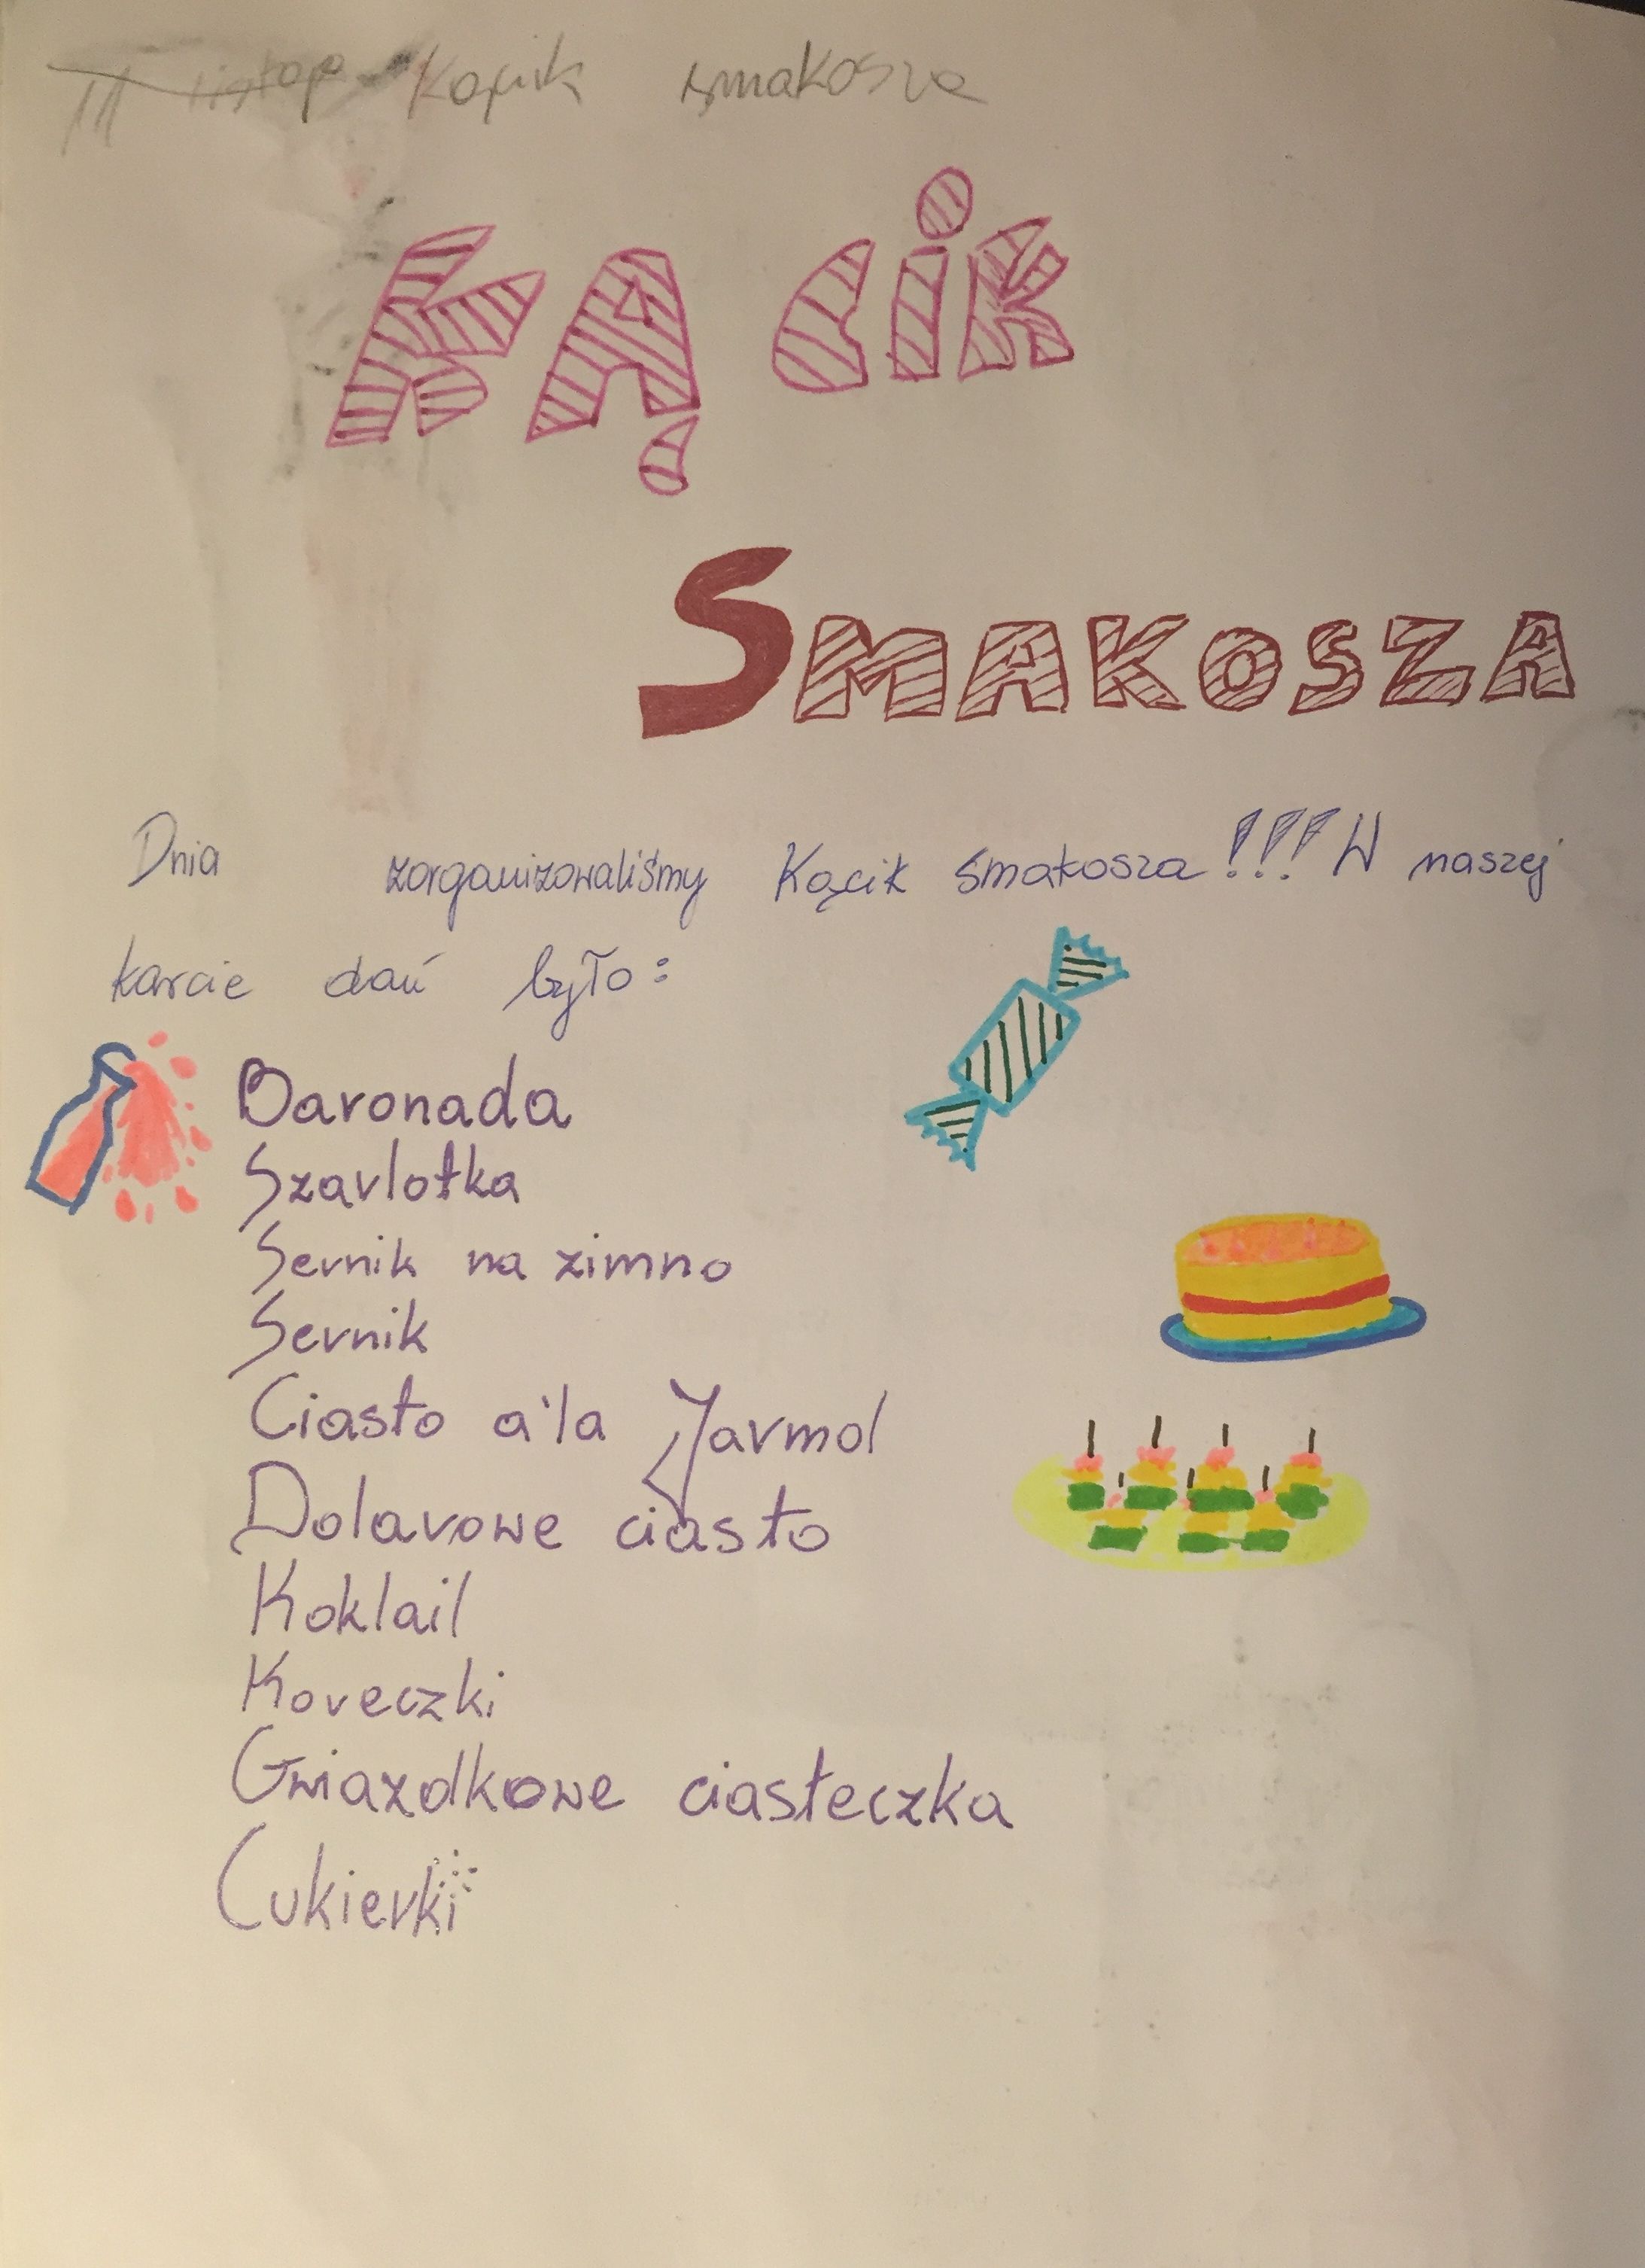 Kącik smakosza
KĄCiK
SMAKOSZA
Dnia zorganizowaliśmy Kącik śmakosza!!! W naszej
karcie dań było:
Baronada
Szarlotka
Sernik na zimno
Sernik
Ciasto a'la Jarmol
Dolarowe ciasto
Koklail
Koreczki
Gwiazdkowe ciasteczka
Cukierki